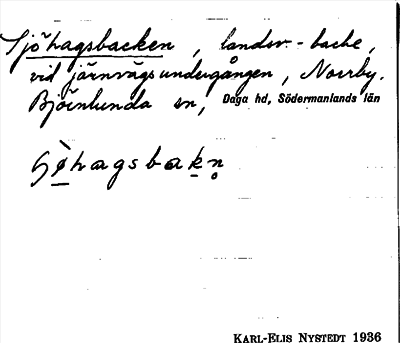 Sjöhagsbacken, landsv.-backe,
vid järnvägsundergången, Norrby.
Björnlunda sn, Daga hd, Södermanlands län
KARL-ELIS NYSTEDT 1936